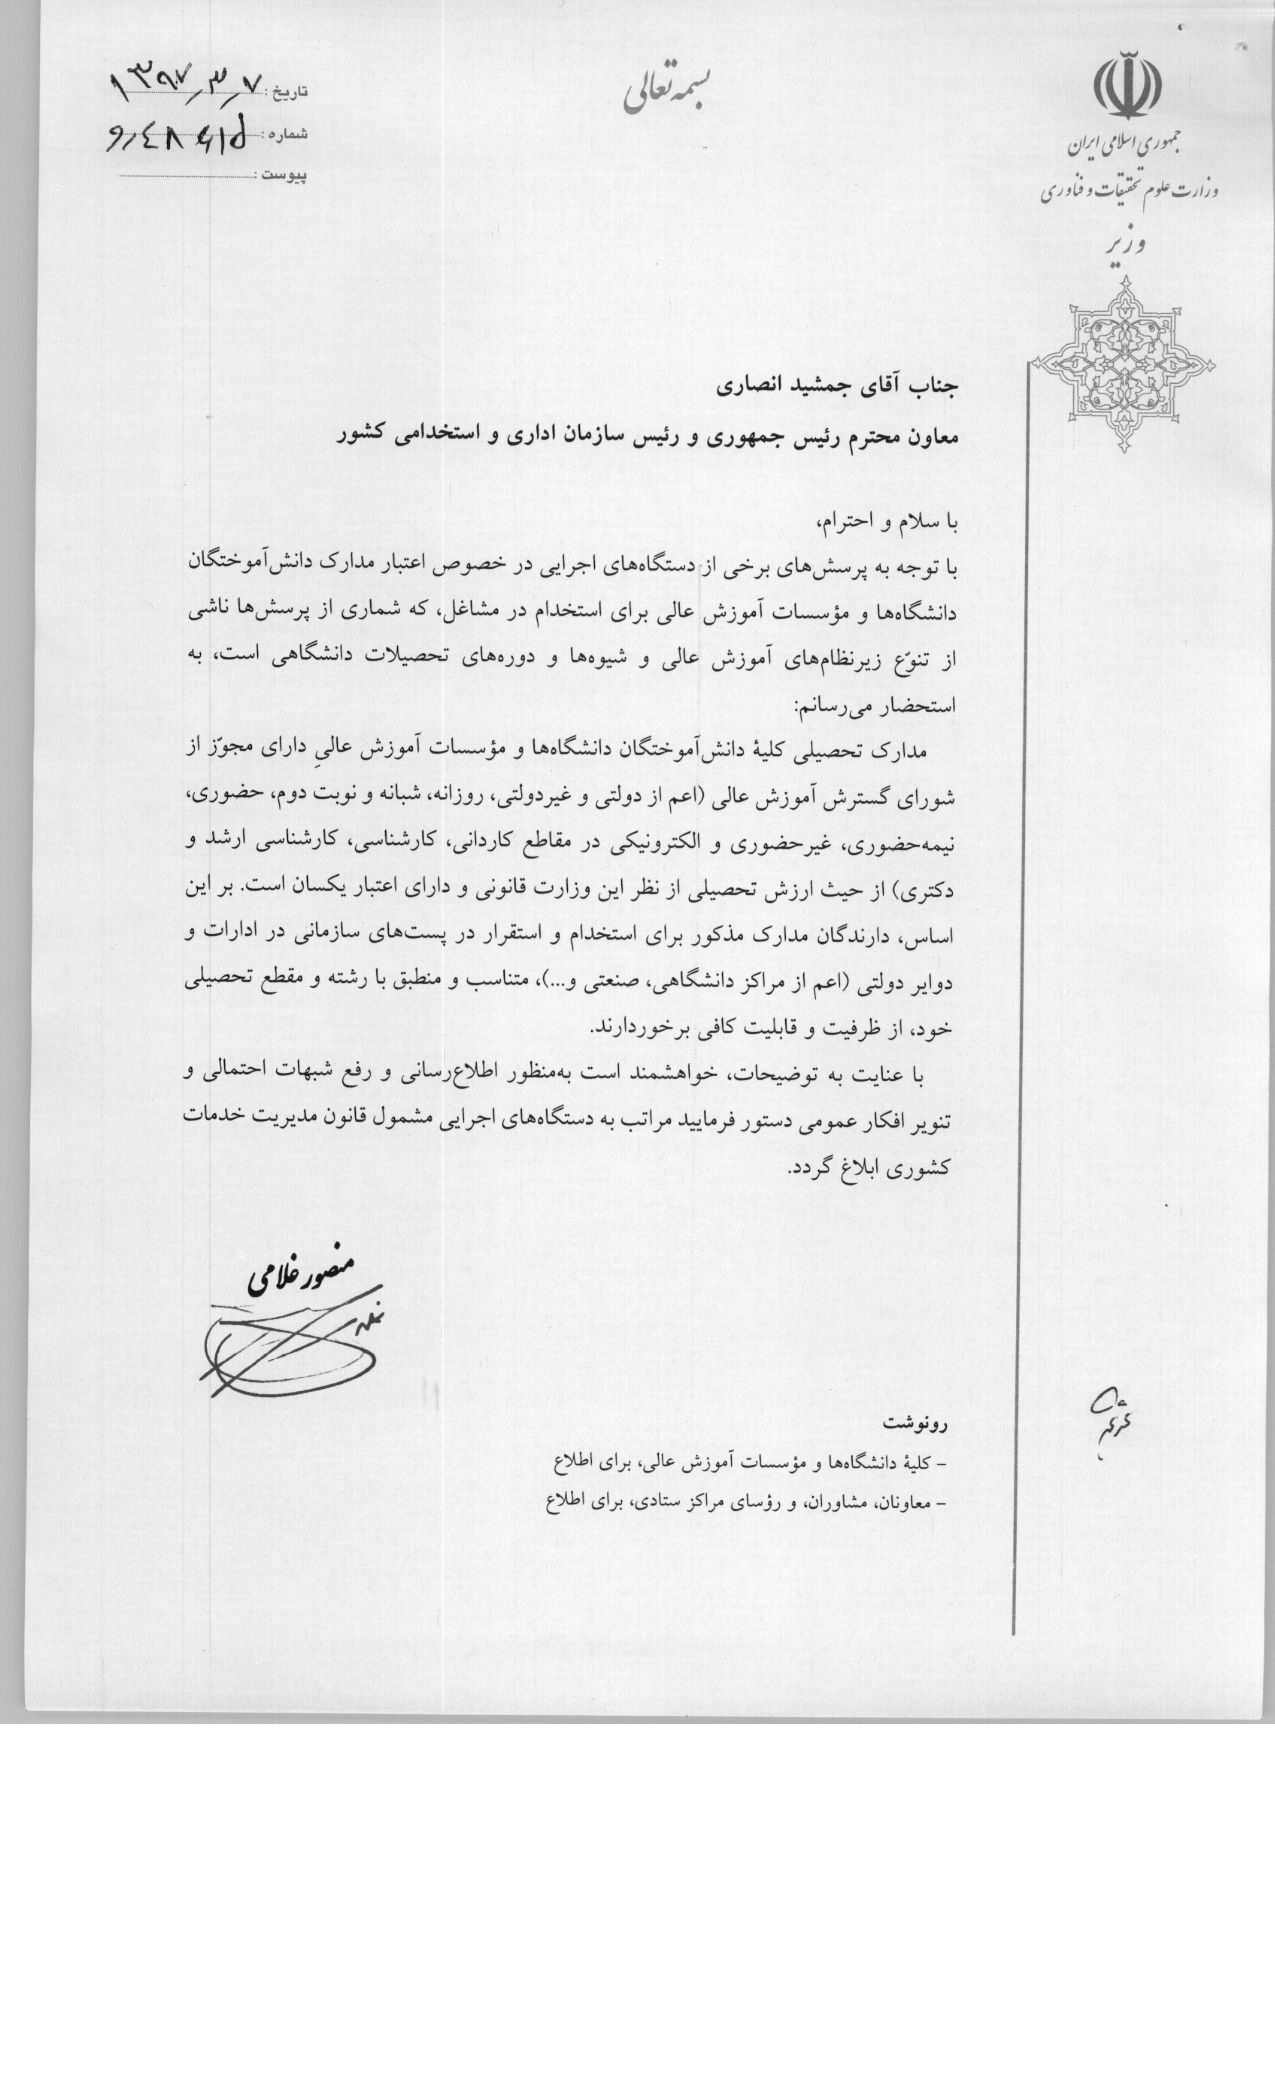 بسمه تعالی
جمهوری اسلامی ایران
وزارت علوم تحقیقات و فناوری
وزیر
تاریخ: ۱۳۹۷/۳/۷
شماره:
پیوست:
جناب آقای جمشید انصاری
معاون محترم رئیس جمهوری و رئیس سازمان اداری و استخدامی کشور
با سلام و احترام،
با توجه به پرسش‌های برخی از دستگاه‌های اجرایی در خصوص اعتبار مدارک دانش‌آموختگان
دانشگاه‌ها و مؤسسات آموزش عالی برای استخدام در مشاغل، که شماری از پرسش‌ها ناشی
از تنوّع زیرنظام‌های آموزش عالی و شیوه‌ها و دوره‌های تحصیلات دانشگاهی است، به
استحضار می‌رسانم:
مدارک تحصیلی کلیۀ دانش‌آموختگان دانشگاه‌ها و مؤسسات آموزش عالیِ دارای مجوّز از
شورای گسترش آموزش عالی (اعم از دولتی و غیردولتی، روزانه، شبانه و نوبت دوم، حضوری،
نیمه‌حضوری، غیرحضوری و الکترونیکی در مقاطع کاردانی، کارشناسی، کارشناسی ارشد و
دکتری) از حیث ارزش تحصیلی از نظر این وزارت قانونی و دارای اعتبار یکسان است. بر این
اساس، دارندگان مدارک مذکور برای استخدام و استقرار در پست‌های سازمانی در ادارات و
دوایر دولتی (اعم از مراکز دانشگاهی، صنعتی و...)، متناسب و منطبق با رشته و مقطع تحصیلی
خود، از ظرفیت و قابلیت کافی برخوردارند.
با عنایت به توضیحات، خواهشمند است به‌منظور اطلاع‌رسانی و رفع شبهات احتمالی و
تنویر افکار عمومی دستور فرمایید مراتب به دستگاه‌های اجرایی مشمول قانون مدیریت خدمات
کشوری ابلاغ گردد.
منصور غلامی
رونوشت
- کلیۀ دانشگاه‌ها و مؤسسات آموزش عالی، برای اطلاع
- معاونان، مشاوران، و رؤسای مراکز ستادی، برای اطلاع